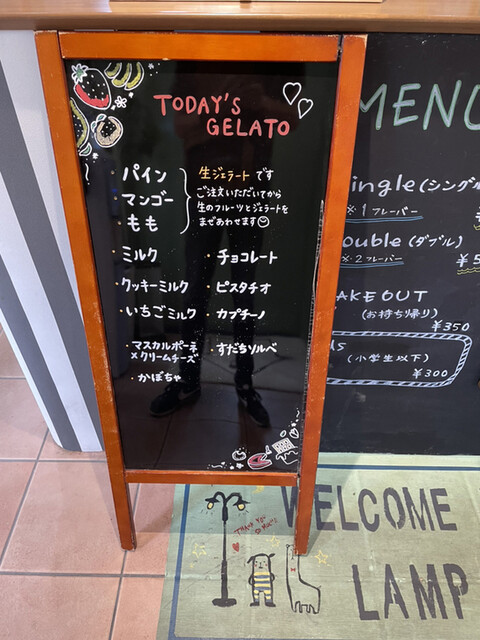 TODAY'S
GELATO
・パイン
・マンゴー
・もも
生ジェラートです
ご注文いただいてから
生のフルーツとジェラートを
まぜあわせます
・ミルク
・クッキーミルク
・いちごミルク
・マスカルポーネ
×クリームチーズ
・かぼちゃ
・チョコレート
・ピスタチオ
・カプチーノ
・すだちソルベ
MENU
ingle(シングル
※1フレーバー
ouble(ダブル)
※2フレーバー
AKE OUT
(お持ち帰り)
¥350
(小学生以下)
¥300
WELCOME
LAMP
THANK YOU